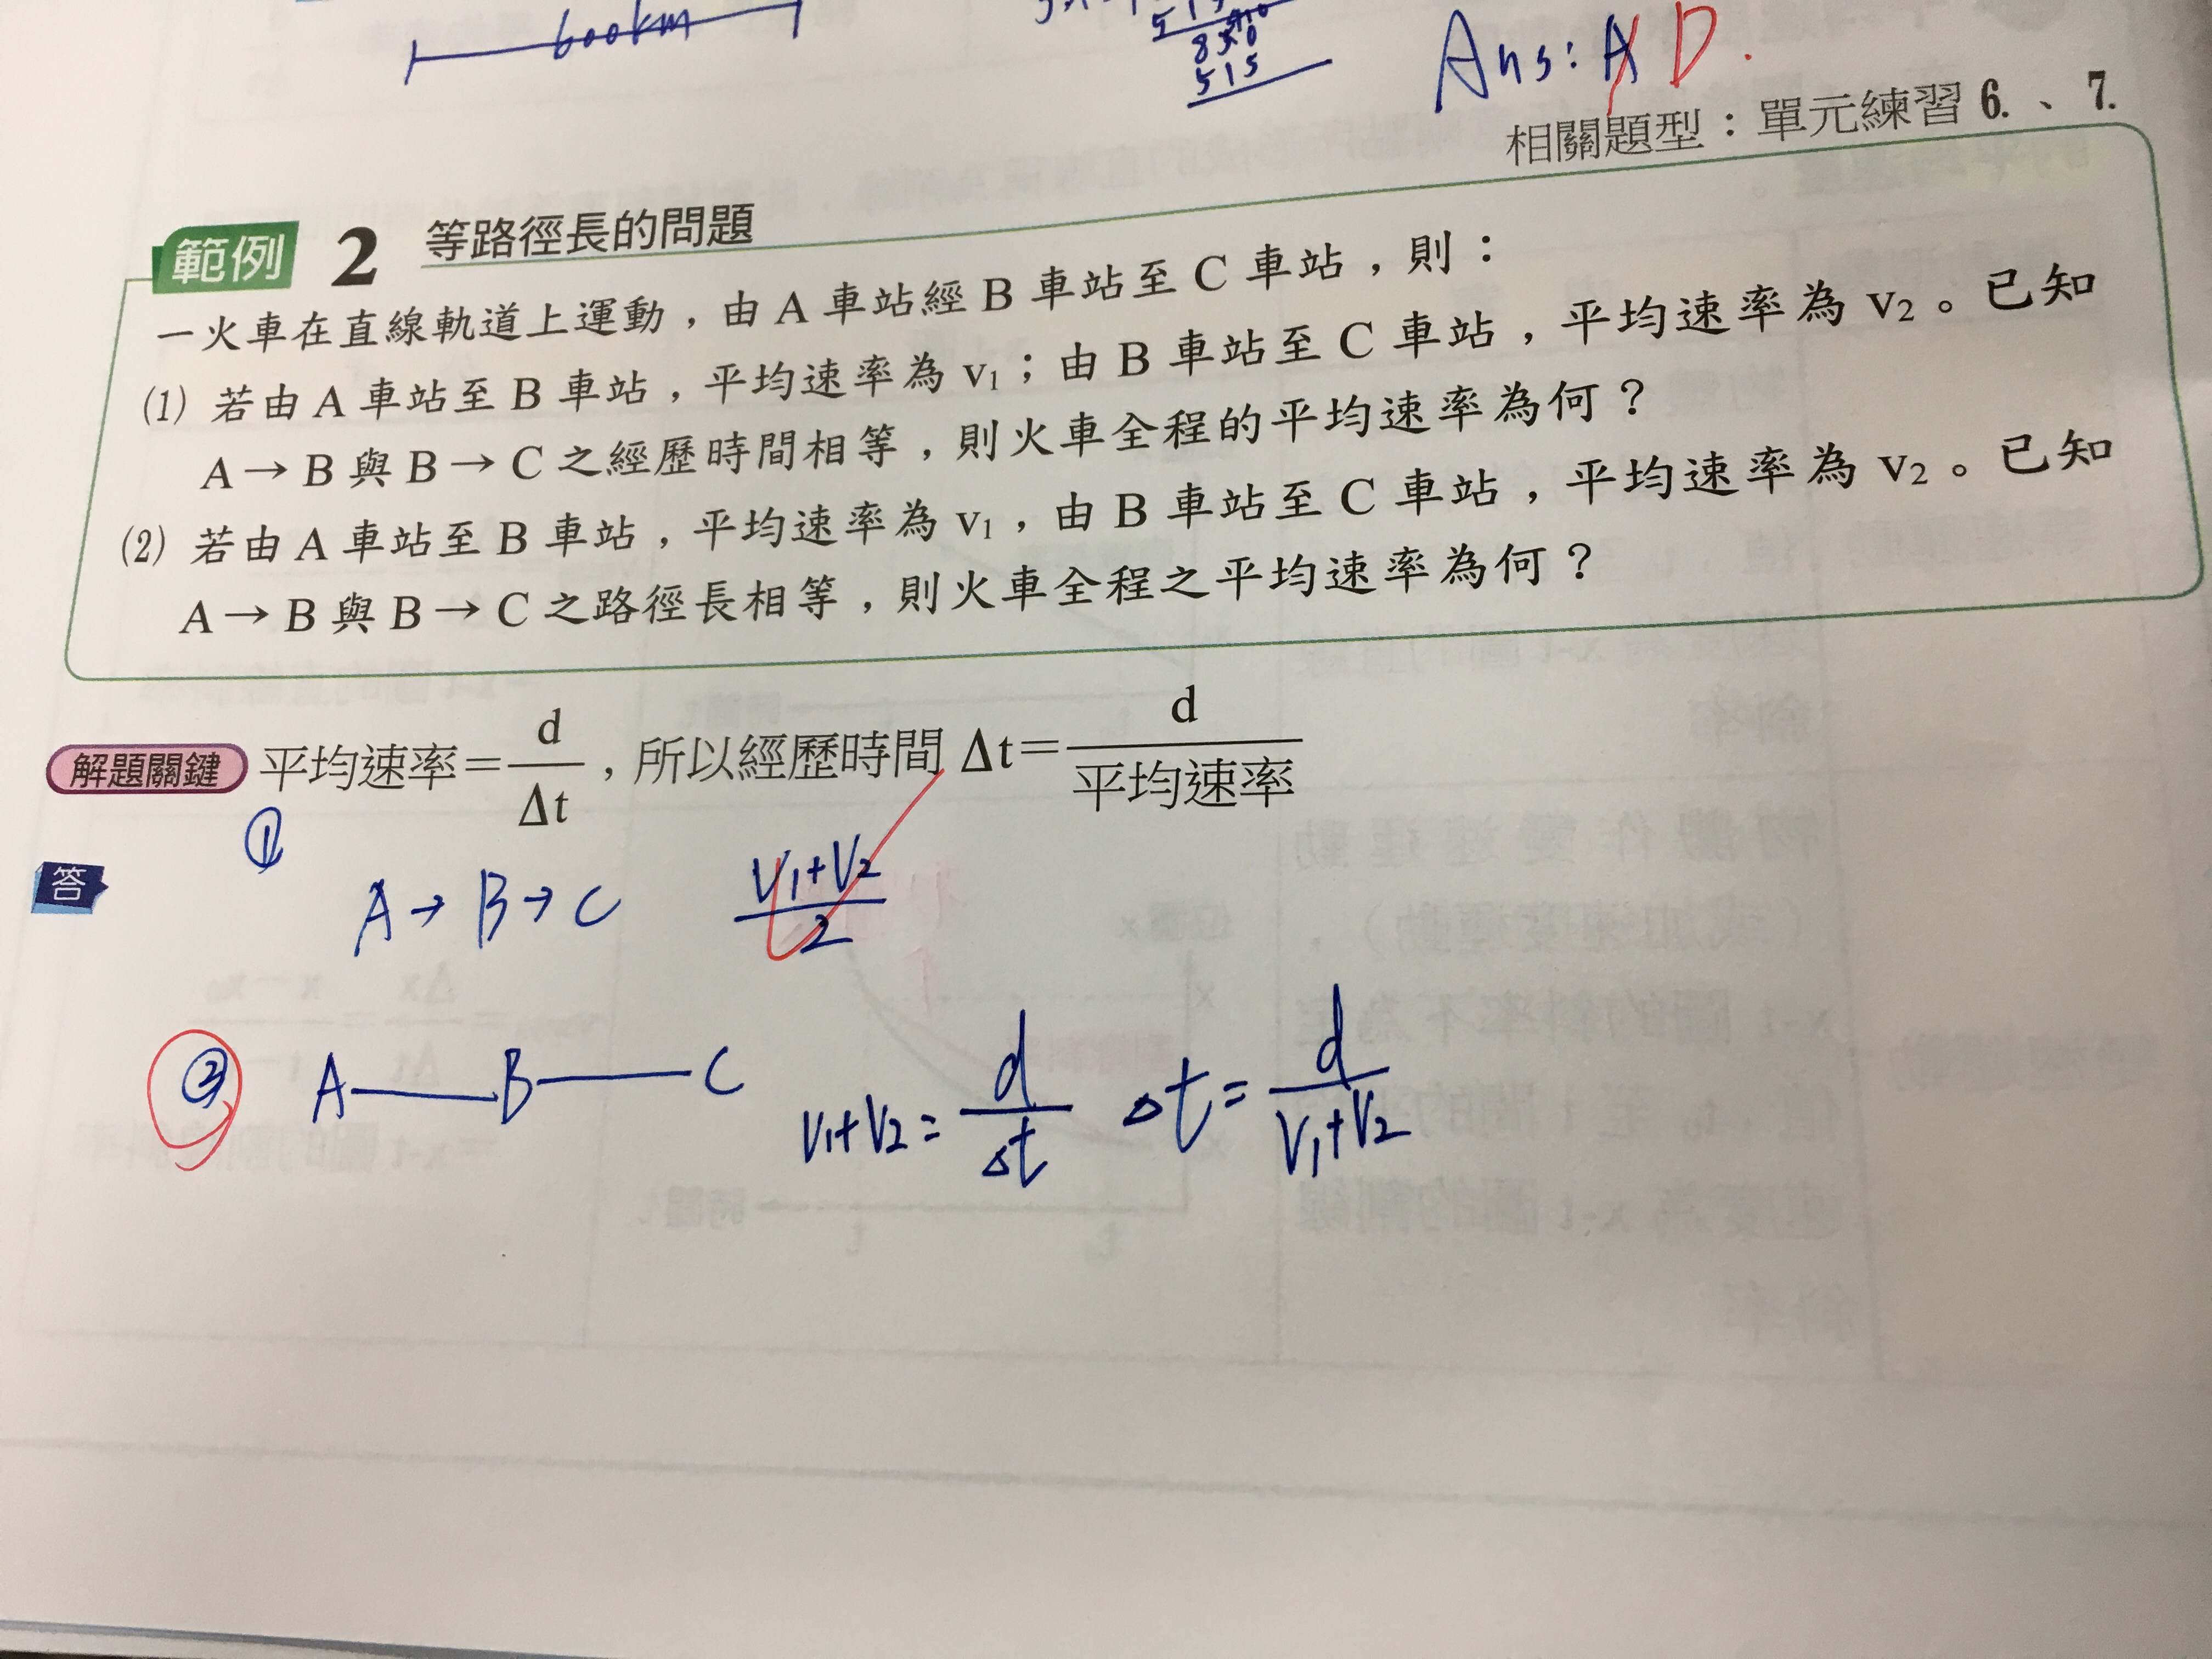 600km
515
850
515
Ans: A D.
相關題型：單元練習 6. 、 7.
範例 2 等路徑長的問題
一火車在直線軌道上運動，由 A 車站經 B 車站至 C 車站，則：
(1) 若由 A 車站至 B 車站，平均速率為 v₁；由 B 車站至 C 車站，平均速率為 v₂。已知
A → B 與 B → C 之經歷時間相等，則火車全程的平均速率為何？
(2) 若由 A 車站至 B 車站，平均速率為 v₁，由 B 車站至 C 車站，平均速率為 v₂。已知
A → B 與 B → C 之路徑長相等，則火車全程之平均速率為何？
解題關鍵 平均速率＝d/Δt，所以經歷時間 Δt＝d/平均速率
①
答 A → B → C (V₁+V₂)/2
② A — B — C V₁+V₂ = d/Δt Δt = d/(V₁+V₂)